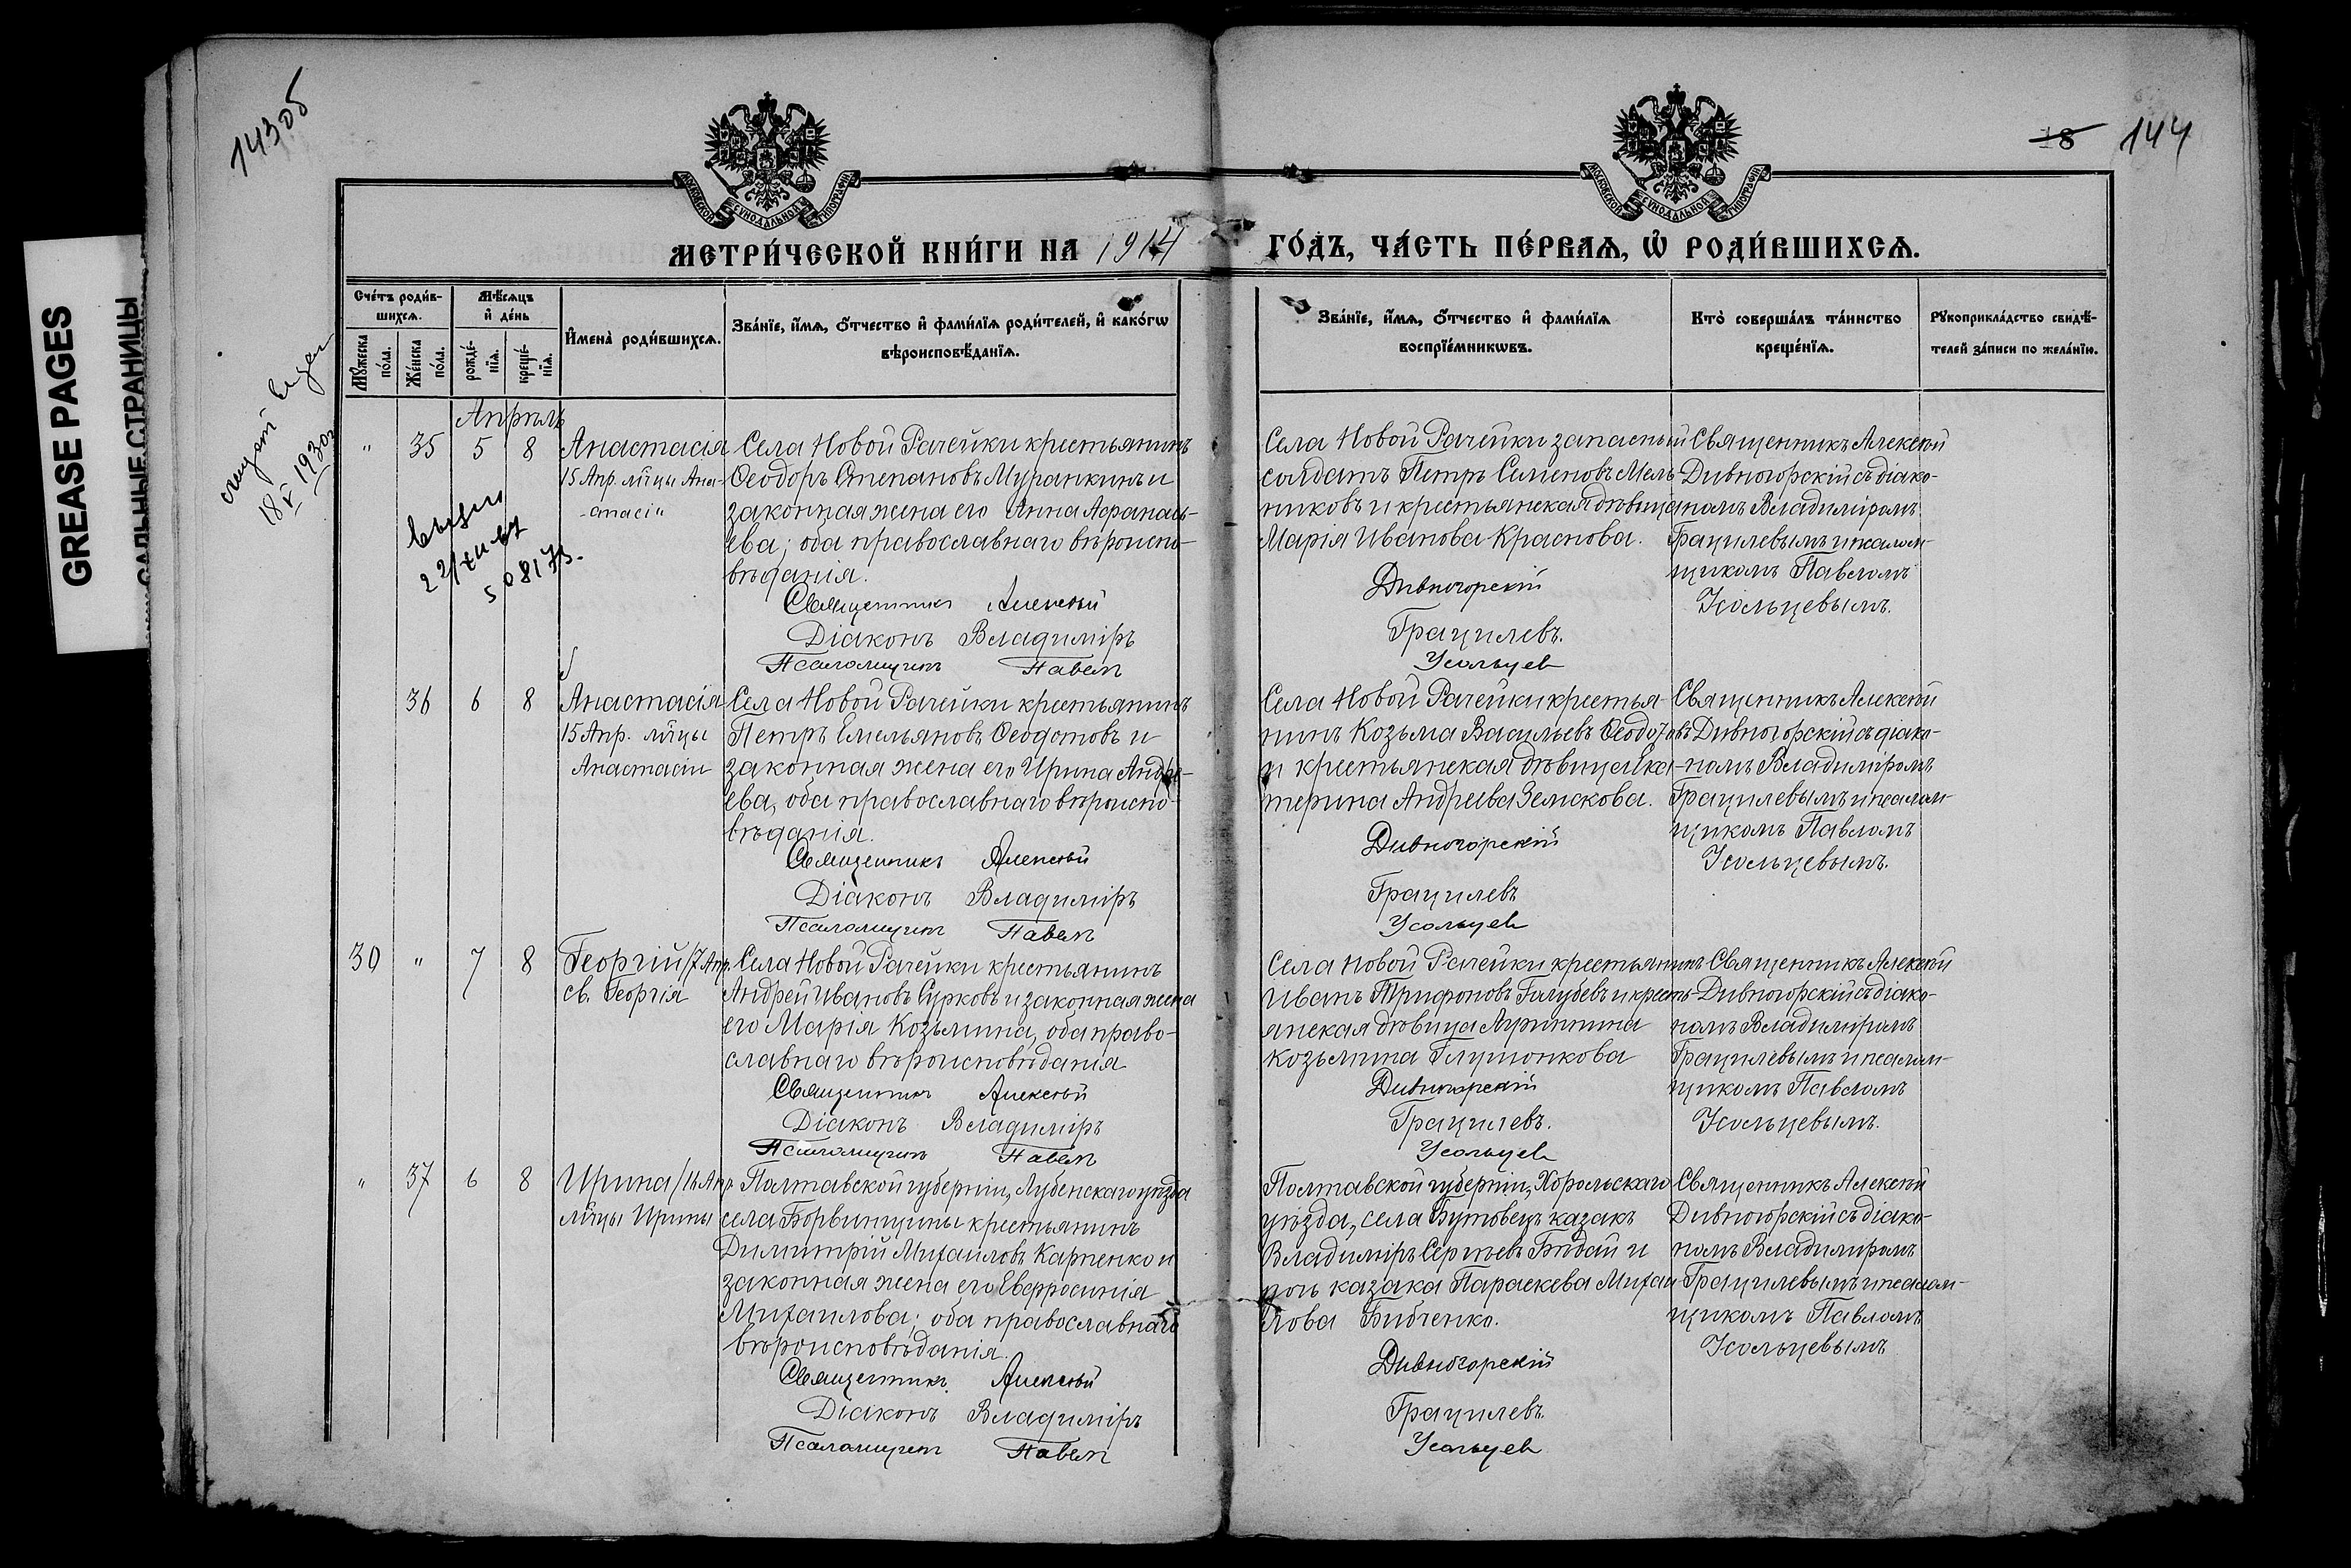 143об
18 144
GREASE PAGES
САЛЬНЫЕ СТРАНИЦЫ
МОСКОВСКОЙ СѴНОДАЛЬНОЙ ТИПОГРАФІИ
МОСКОВСКОЙ СѴНОДАЛЬНОЙ ТИПОГРАФІИ
МЕТРИ́ЧЕСКОЙ КНИ́ГИ НА 1914 ГО́ДЪ, ЧА́СТЬ ПЕ́РВАѦ, Ѡ҆ РОДИ́ВШИХСѦ.
Сче́тъ роди́в-
шихсѧ.
Мꙋ́жеска по́ла.
Же́нска по́ла.
Мѣ́сѧцъ
и҆ де́нь
рожде́-
нїѧ.
креще́-
нїѧ.
И҆мена̀ роди́вшихсѧ.
Зва́нїе, и҆́мѧ, ѻ҆́тчество и҆ фами́лїѧ роди́телей, и҆ како́гѡ
вѣроисповѣ́данїѧ.
Зва́нїе, и҆́мѧ, ѻ҆́тчество и҆ фами́лїѧ
воспрїе́мникѡвъ.
Кто̀ соверша́лъ та́инство
креще́нїѧ.
Рꙋкоприкла́дство свидѣ́-
телей за́писи по жела́нїю.
18 V 1930г
Апрѣль
" 35 5 8
Анастасія
15 Апр. м̃цы Ана-
стасіи
22/XII-67
508173.
Села Новой Рачейки крестьянинъ
Ѳеодоръ Степановъ Муранкинъ и
законная жена его Анна Аѳанась-
ева; оба православнаго вѣроиспо-
вѣданія.
Священникъ Алексѣй Дивногорскій
Діаконъ Владиміръ Грацилевъ.
Псаломщикъ Павелъ Усольцев
Села Новой Рачейки запасный
солдатъ Петръ Семеновъ Мель-
никовъ и крестьянская дѣвица
Марія Иванова Краснова.
Священникъ Алексѣй
Дивногорскій съ діако-
номъ Владиміромъ
Грацилевымъ и псалом-
щикомъ Павломъ
Усольцевымъ.
36 6 8
Анастасія
15 Апр. м̃цы
Анастасіи
Села Новой Рачейки крестьянинъ
Петръ Емельяновъ Ѳеодотовъ и
законная жена его Ирина Андре-
ева, оба православнаго вѣроиспо-
вѣданія.
Священникъ Алексѣй Дивногорскій
Діаконъ Владиміръ Грацилевъ
Псаломщикъ Павелъ Усольцев
Села Новой Рачейки крестья-
нинъ Козьма Васильевъ Ѳеодотовъ
и крестьянская дѣвица Ека-
терина Андреева Земскова.
Священникъ Алексѣй
Дивногорскій съ діако-
номъ Владиміромъ
Грацилевымъ и псалом-
щикомъ Павломъ
Усольцевымъ.
30 " 7 8
Георгій/7 Апр.
св. Георгія
Села Новой Рачейки крестьянинъ
Андрей Ивановъ Сурковъ и законная жена
его Марія Козьмина, оба право-
славнаго вѣроисповѣданія
Священникъ Алексѣй Дивногорскій
Діаконъ Владиміръ Грацилевъ.
Псаломщикъ Павелъ Усольцев
Села Новой Рачейки крестьянинъ
Иванъ Трифоновъ Голубевъ и кресть-
янская дѣвица Агриппина
Козьмина Глушонкова
Священникъ Алексѣй
Дивногорскій съ діако-
номъ Владиміромъ
Грацилевымъ и псалом-
щикомъ Павломъ
Усольцевымъ.
" 37 6 8
Ирина/16 Апр.
м̃цы Ирины
Полтавской губерніи, Лубенскаго уѣзда
села Борвинщины крестьянинъ
Димитрій Михаиловъ Карпенко и
законная жена его Евфросинія
Михаилова; оба православнаго
вѣроисповѣданія.
Священникъ Алексѣй Дивногорскій
Діаконъ Владиміръ Грацилевъ.
Псаломщикъ Павелъ Усольцев
Полтавской губерніи, Хорольскаго
уѣзда, села Бутовецъ казакъ
Владиміръ Сергѣевъ Бѣдай и
дочь казака Параскева Михаи-
лова Бибченко.
Священникъ Алексѣй
Дивногорскій съ діако-
номъ Владиміромъ
Грацилевымъ и псалом-
щикомъ Павломъ
Усольцевымъ